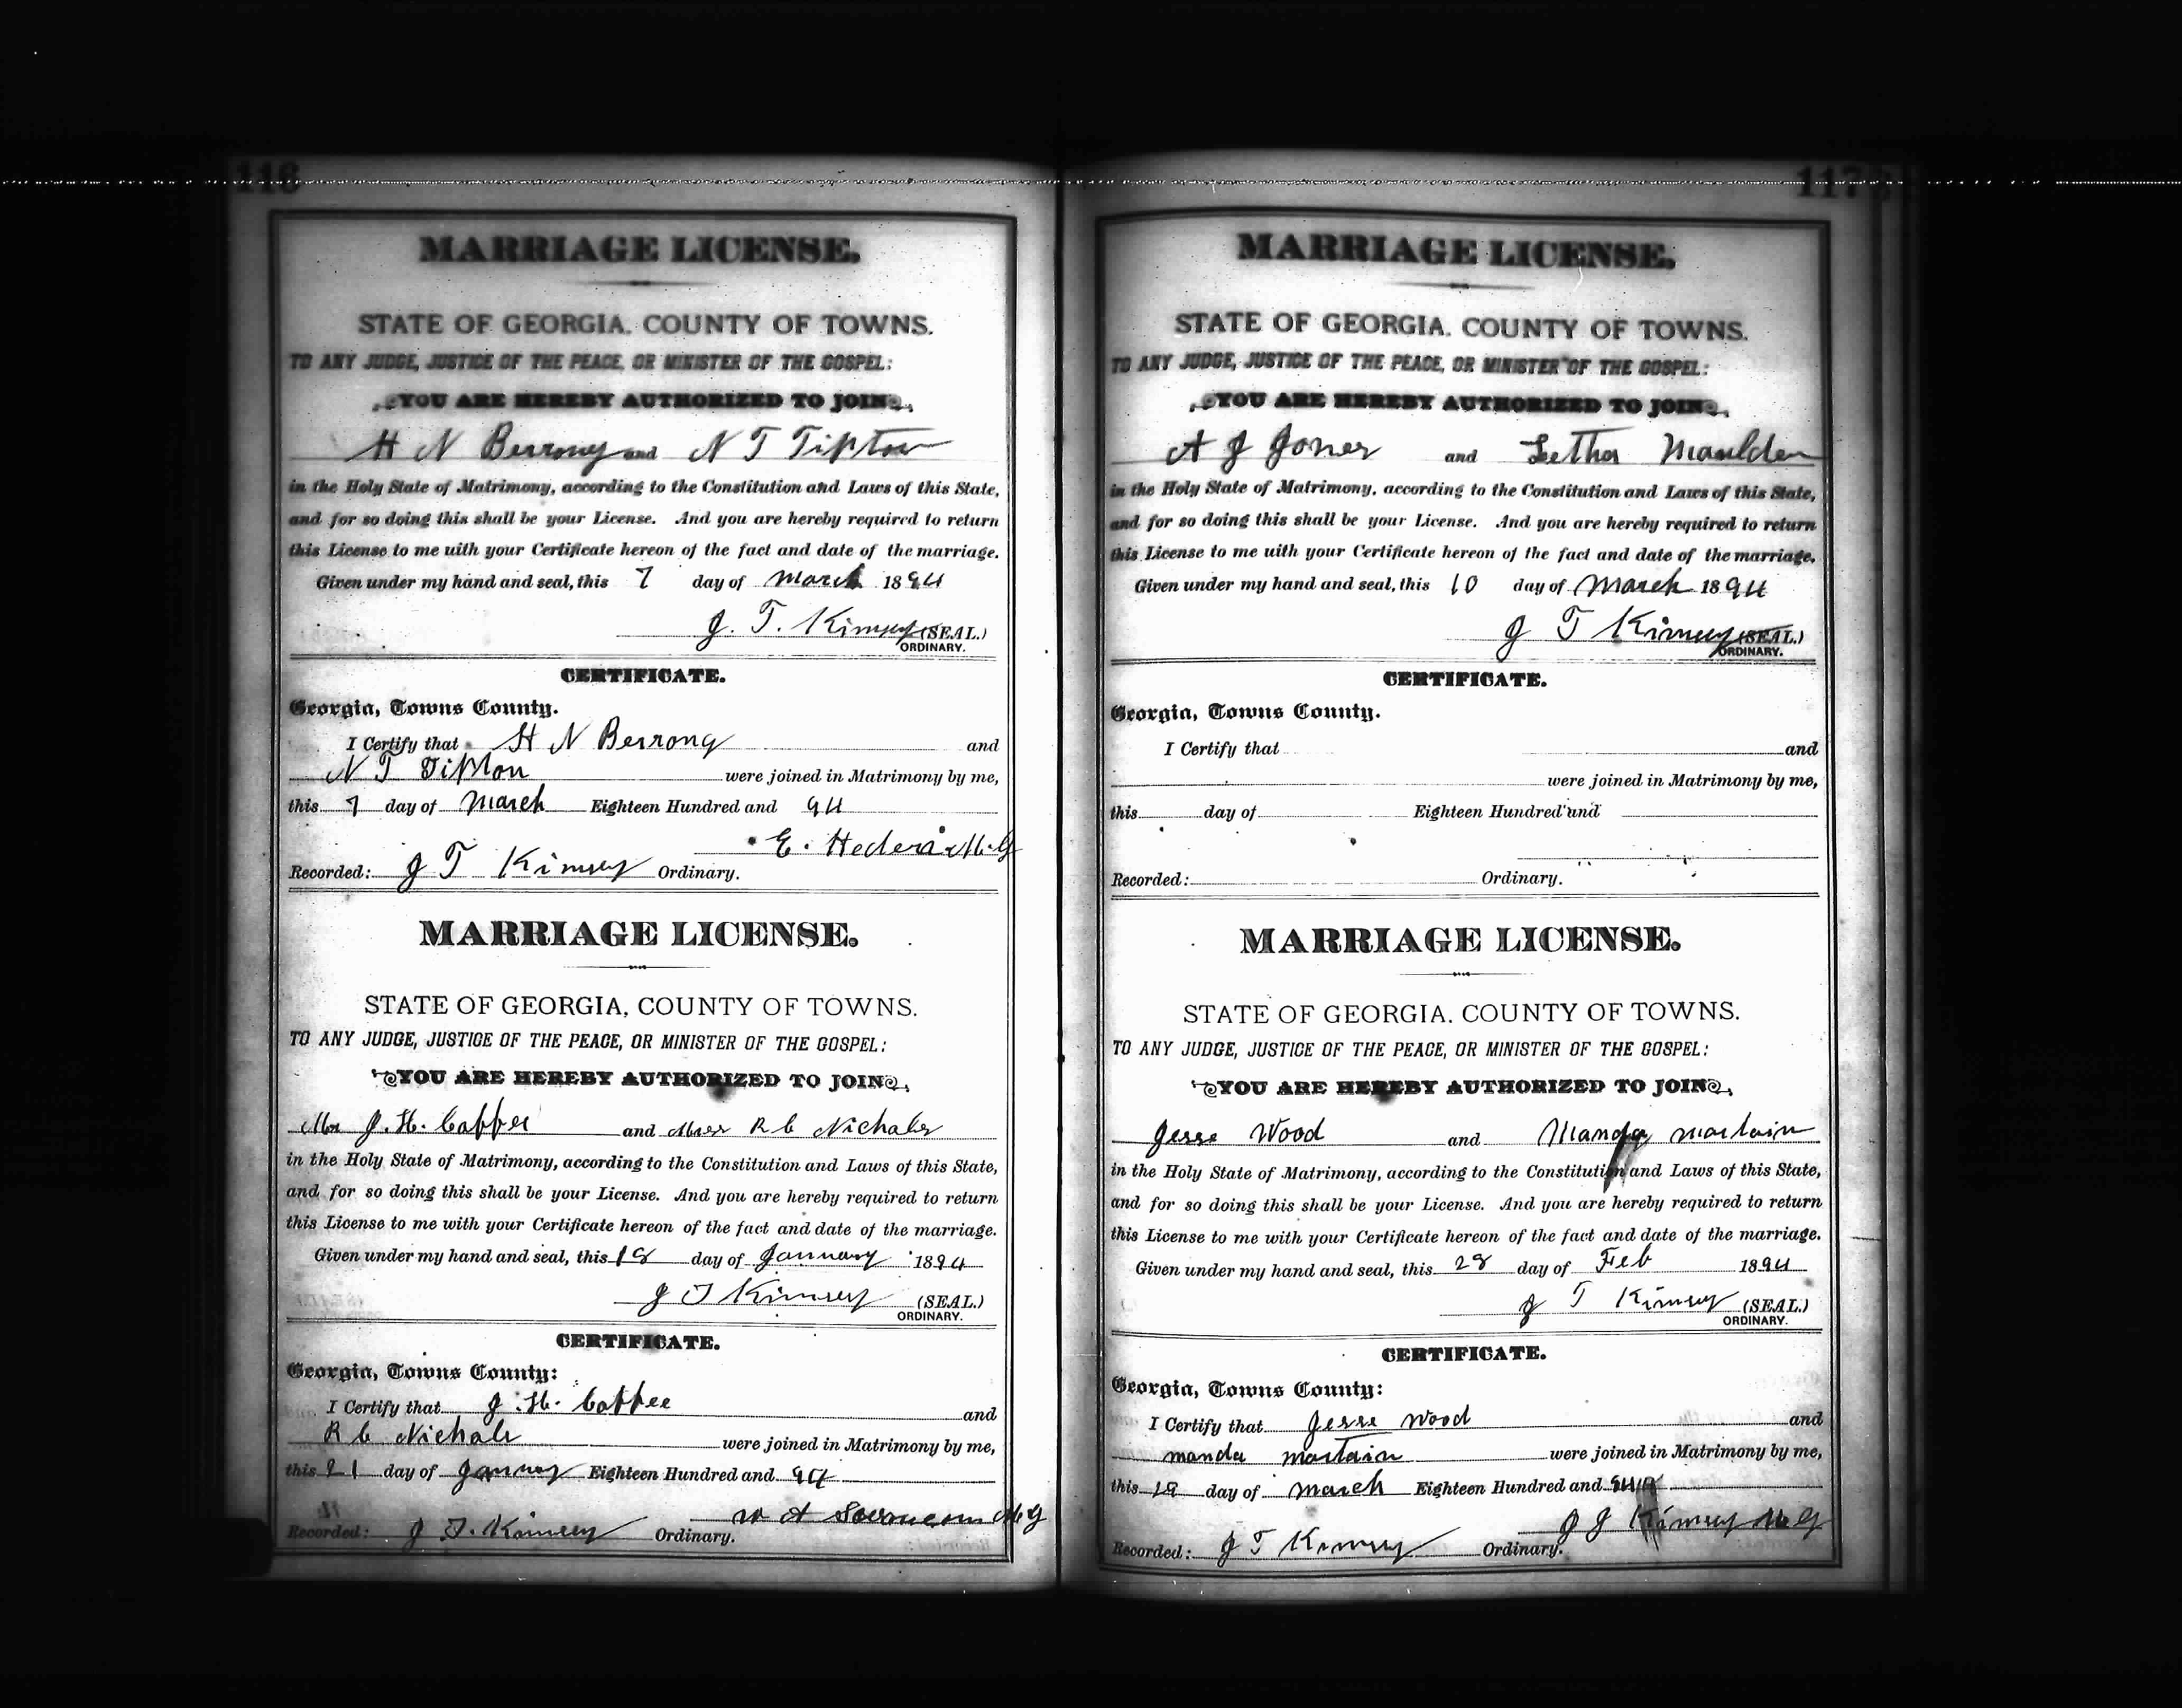 116
MARRIAGE LICENSE.
STATE OF GEORGIA. COUNTY OF TOWNS.
TO ANY JUDGE, JUSTICE OF THE PEACE, OR MINISTER OF THE GOSPEL:
YOU ARE HEREBY AUTHORIZED TO JOIN
H N Berrong and N T Tipton
in the Holy State of Matrimony, according to the Constitution and Laws of this State,
and for so doing this shall be your License. And you are hereby required to return
this License to me with your Certificate hereon of the fact and date of the marriage.
Given under my hand and seal, this 7 day of March 1894
J. T. Kimsey (SEAL.)
ORDINARY.
CERTIFICATE.
Georgia, Towns County.
I Certify that H N Berrong and
N T Tipton were joined in Matrimony by me,
this 7 day of March Eighteen Hundred and 94
E. M.G
Recorded: J T Kimsey Ordinary.
MARRIAGE LICENSE.
STATE OF GEORGIA, COUNTY OF TOWNS.
TO ANY JUDGE, JUSTICE OF THE PEACE, OR MINISTER OF THE GOSPEL:
YOU ARE HEREBY AUTHORIZED TO JOIN
Mr J. H. and Miss R C Nichals
in the Holy State of Matrimony, according to the Constitution and Laws of this State,
and for so doing this shall be your License. And you are hereby required to return
this License to me with your Certificate hereon of the fact and date of the marriage.
Given under my hand and seal, this 18 day of January 1894
J T Kimsey (SEAL.)
ORDINARY.
CERTIFICATE.
Georgia, Towns County:
I Certify that J. H. Coffee and
R C Nichals were joined in Matrimony by me,
this 21 day of January Eighteen Hundred and 94
W A M G
Recorded: J T. Kimsey Ordinary.
117
MARRIAGE LICENSE.
STATE OF GEORGIA. COUNTY OF TOWNS.
TO ANY JUDGE, JUSTICE OF THE PEACE, OR MINISTER OF THE GOSPEL:
YOU ARE HEREBY AUTHORIZED TO JOIN
A J Jones and Letha Maulden
in the Holy State of Matrimony, according to the Constitution and Laws of this State,
and for so doing this shall be your License. And you are hereby required to return
this License to me with your Certificate hereon of the fact and date of the marriage.
Given under my hand and seal, this 10 day of March 1894
J T Kimsey (SEAL.)
ORDINARY.
CERTIFICATE.
Georgia, Towns County.
I Certify that and
were joined in Matrimony by me,
this day of Eighteen Hundred and
Recorded: Ordinary.
MARRIAGE LICENSE.
STATE OF GEORGIA. COUNTY OF TOWNS.
TO ANY JUDGE, JUSTICE OF THE PEACE, OR MINISTER OF THE GOSPEL:
YOU ARE HEREBY AUTHORIZED TO JOIN
Jesse Wood and Manda martain
in the Holy State of Matrimony, according to the Constitution and Laws of this State,
and for so doing this shall be your License. And you are hereby required to return
this License to me with your Certificate hereon of the fact and date of the marriage.
Given under my hand and seal, this 28 day of Feb 1894
J T Kimsey (SEAL.)
ORDINARY.
CERTIFICATE.
Georgia, Towns County:
I Certify that Jesse Wood and
manda martain were joined in Matrimony by me,
this 18 day of March Eighteen Hundred and 94
J J Kimsey M G
Recorded: J T Kimsey Ordinary.